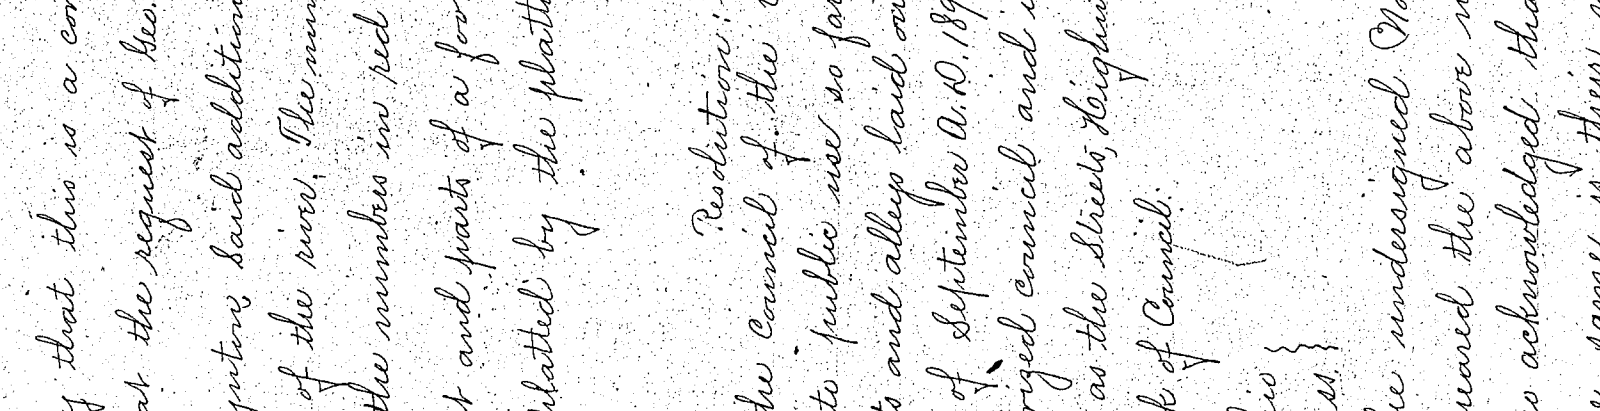 that this is a con
at the request of Geo.
ption, Said addition
of the river. The num
the numbers in red
t and parts of a foo
platted by the platt
Resolution:
the Council of the
to public use so far
ts and alleys laid ou
of September A.D. 189
rized council and i
as the Streets, High
k of Council.
io
ss.
e undersigned No
peared the above n
o acknowledged tha
same, is their